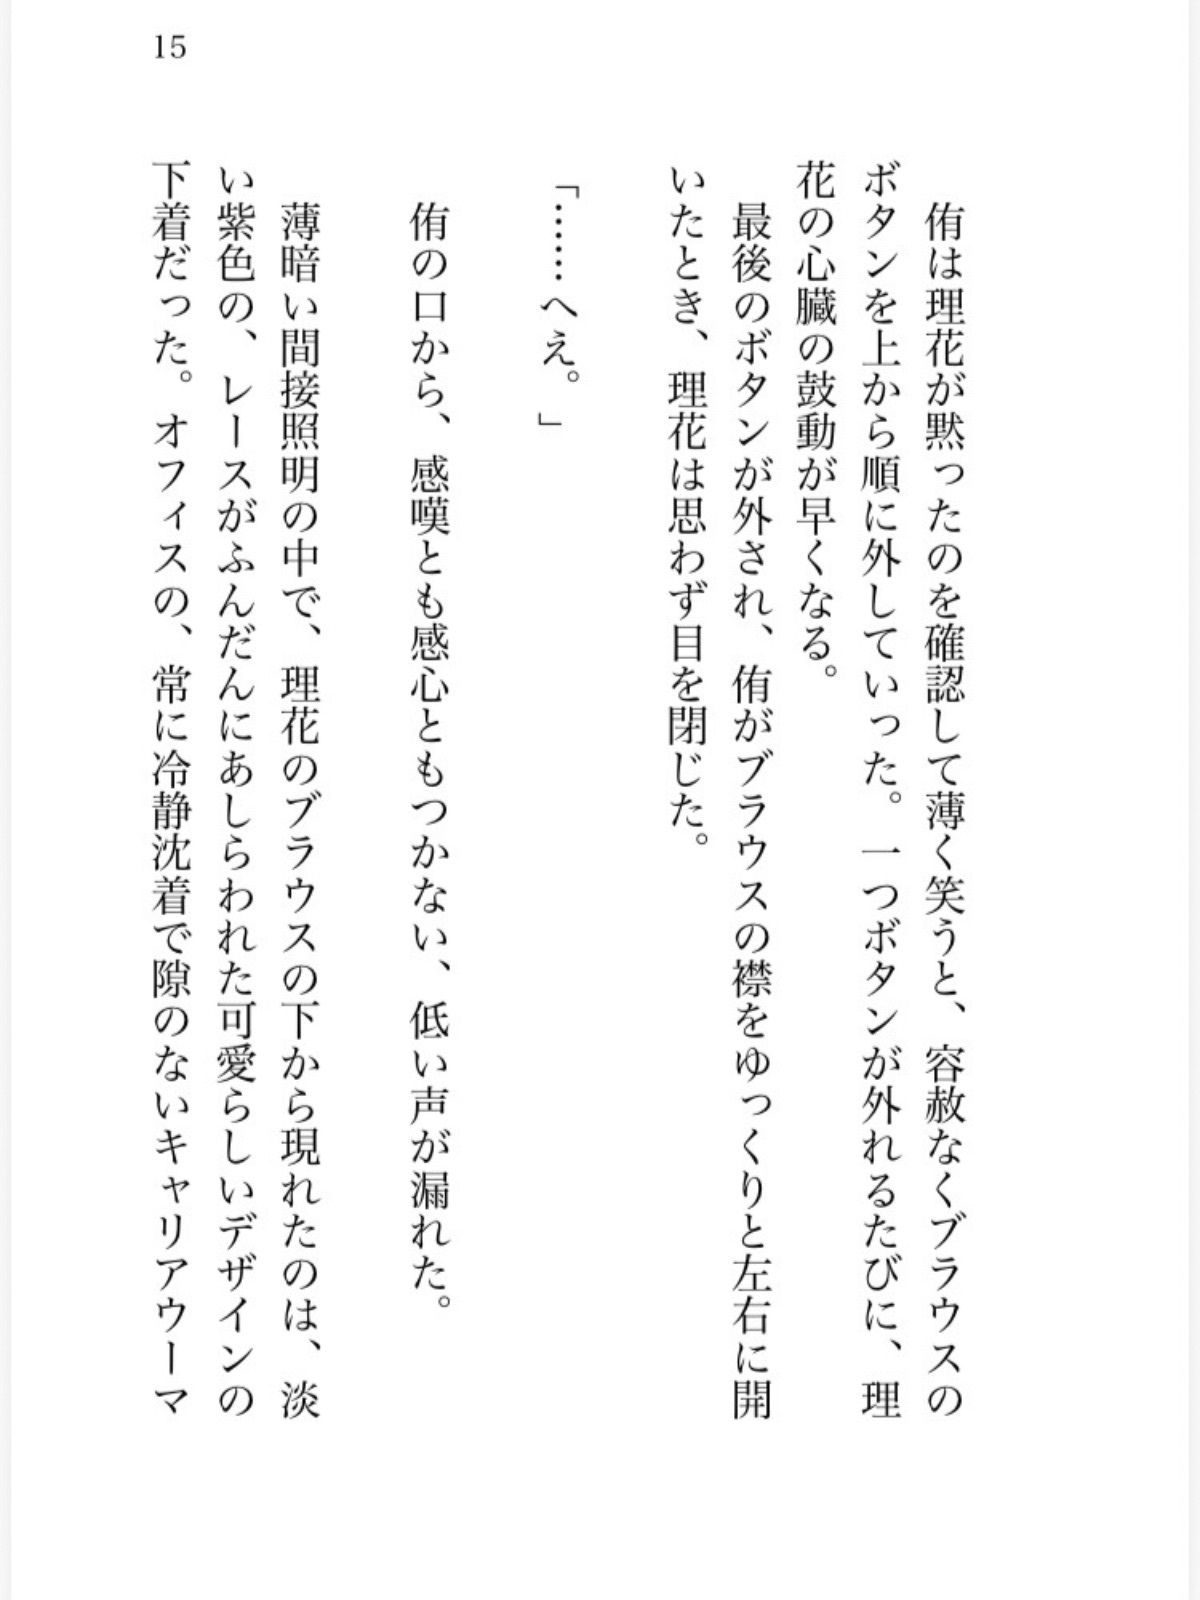 15
侑は理花が黙ったのを確認して薄く笑うと、容赦なくブラウスの
ボタンを上から順に外していった。一つボタンが外れるたびに、理
花の心臓の鼓動が早くなる。
最後のボタンが外され、侑がブラウスの襟をゆっくりと左右に開
いたとき、理花は思わず目を閉じた。
「……へえ。」
侑の口から、感嘆とも感心ともつかない、低い声が漏れた。
薄暗い間接照明の中で、理花のブラウスの下から現れたのは、淡
い紫色の、レースがふんだんにあしらわれた可愛らしいデザインの
下着だった。オフィスの、常に冷静沈着で隙のないキャリアウーマ